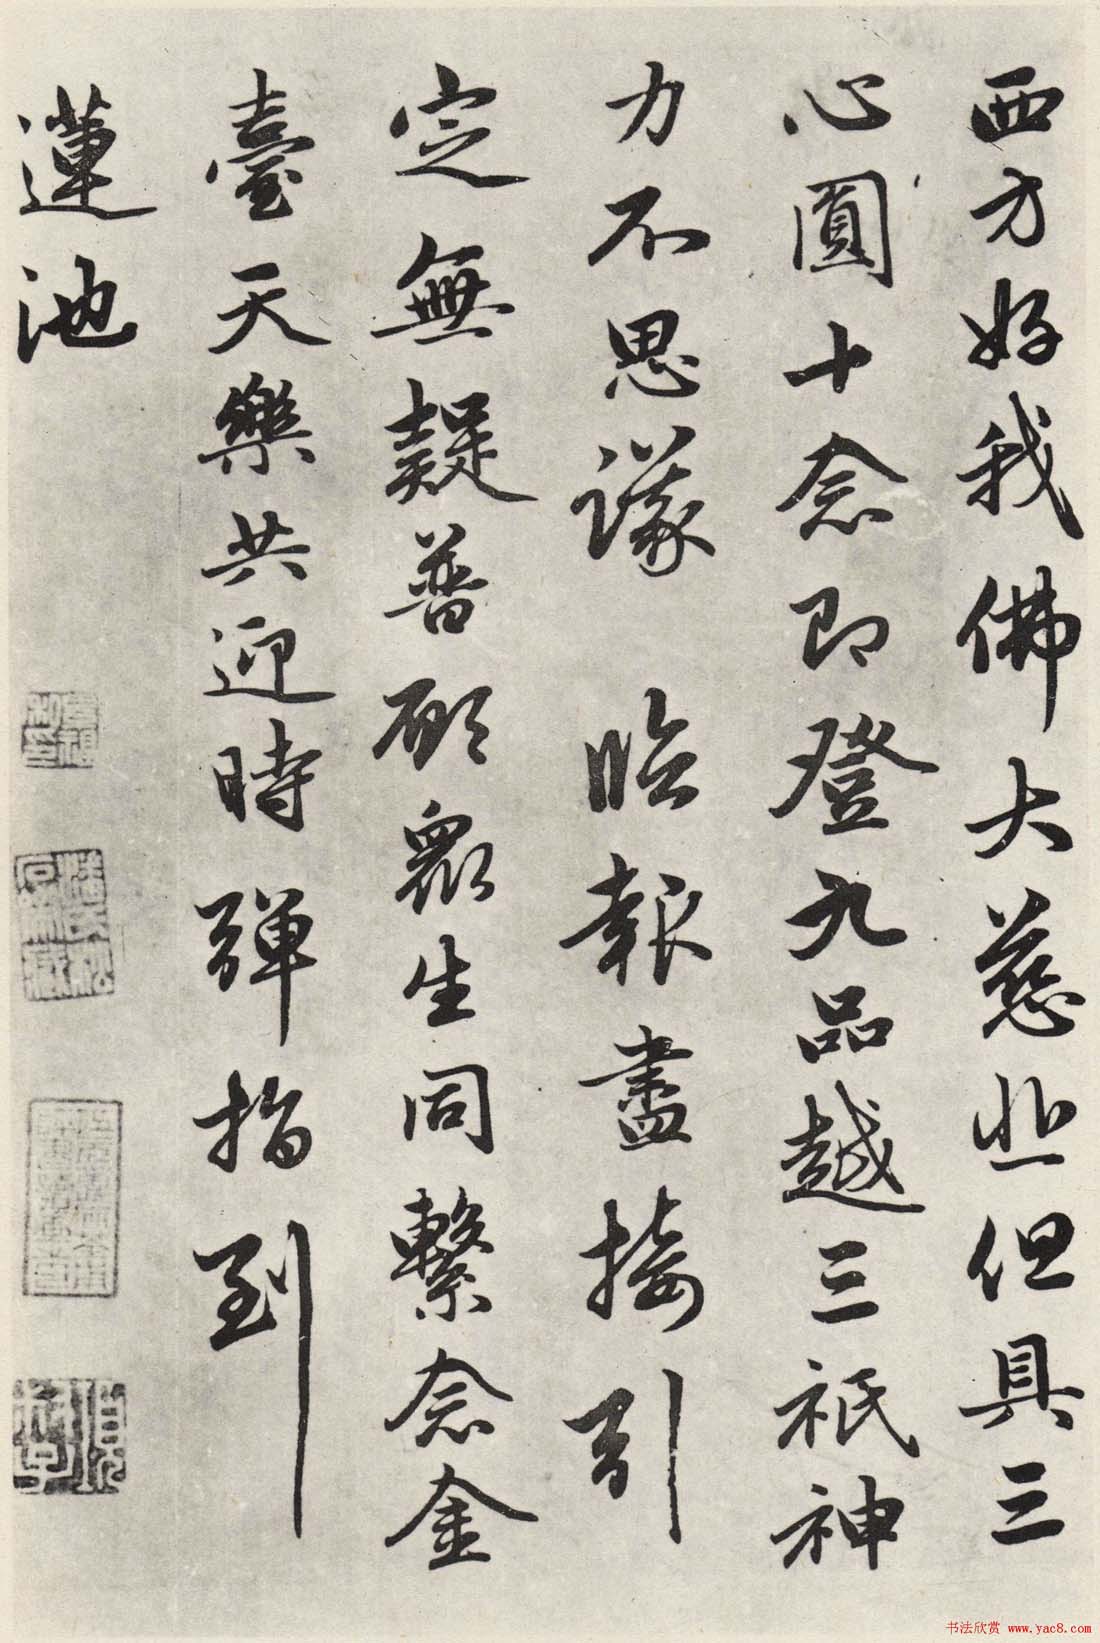 西方好我佛大慈悲但具三
心圓十念即登九品越三祇神
力不思議 臨報盡接引
定無疑普願眾生同繫念金
臺天樂共迎時彈指到
蓮池
书法欣赏 www.yac8.com